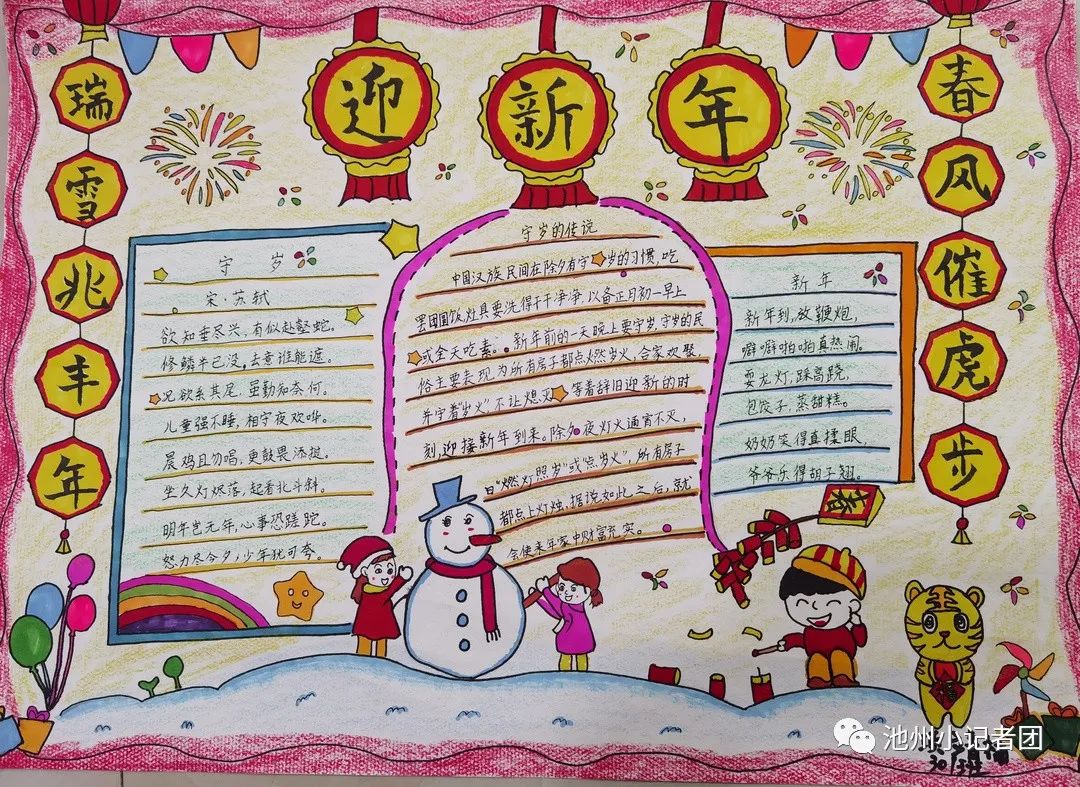 迎新年
瑞雪兆丰年
春风催虎步
守 岁
宋·苏轼
欲知垂尽岁，有似赴壑蛇。
修鳞半已没，去意谁能遮。
况欲系其尾，虽勤知奈何。
儿童强不睡，相守夜欢哗。
晨鸡且勿唱，更鼓畏添挝。
坐久灯烬落，起看北斗斜。
明年岂无年，心事恐蹉跎。
努力尽今夕，少年犹可夸。
守岁的传说
中国汉族民间在除夕有守岁的习惯，吃
罢团圆饭，灶具要洗得干干净净，以备正月初一早上
或全天吃素。新年前的一天晚上要守岁，守岁的民
俗主要表现为所有房子都点燃岁火，合家欢聚，
并守着“岁火”不让熄火，等着辞旧迎新的时
刻，迎接新年到来。除夕夜灯火通宵不灭，
曰“燃灯照岁”或“点岁火”，所有房子
都点上灯烛，据说如此之后，就
会使来年家中财富充实。
新 年
新年到，放鞭炮，
噼噼啪啪真热闹。
耍龙灯，踩高跷，
包饺子，蒸甜糕。
奶奶笑得直揉眼，
爷爷乐得胡子翘。
春
福
王
池州小记者团
301班